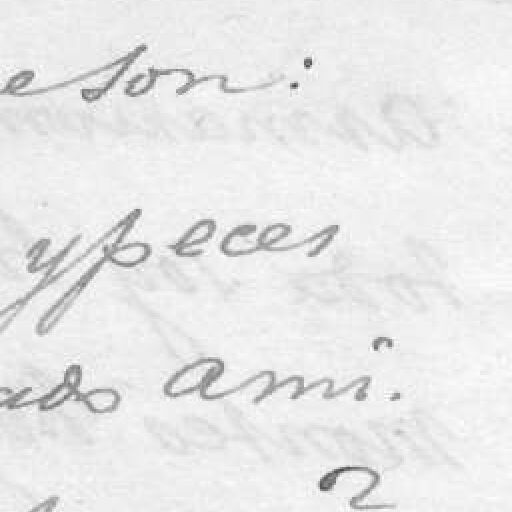 eson:
y peces
ados ami.